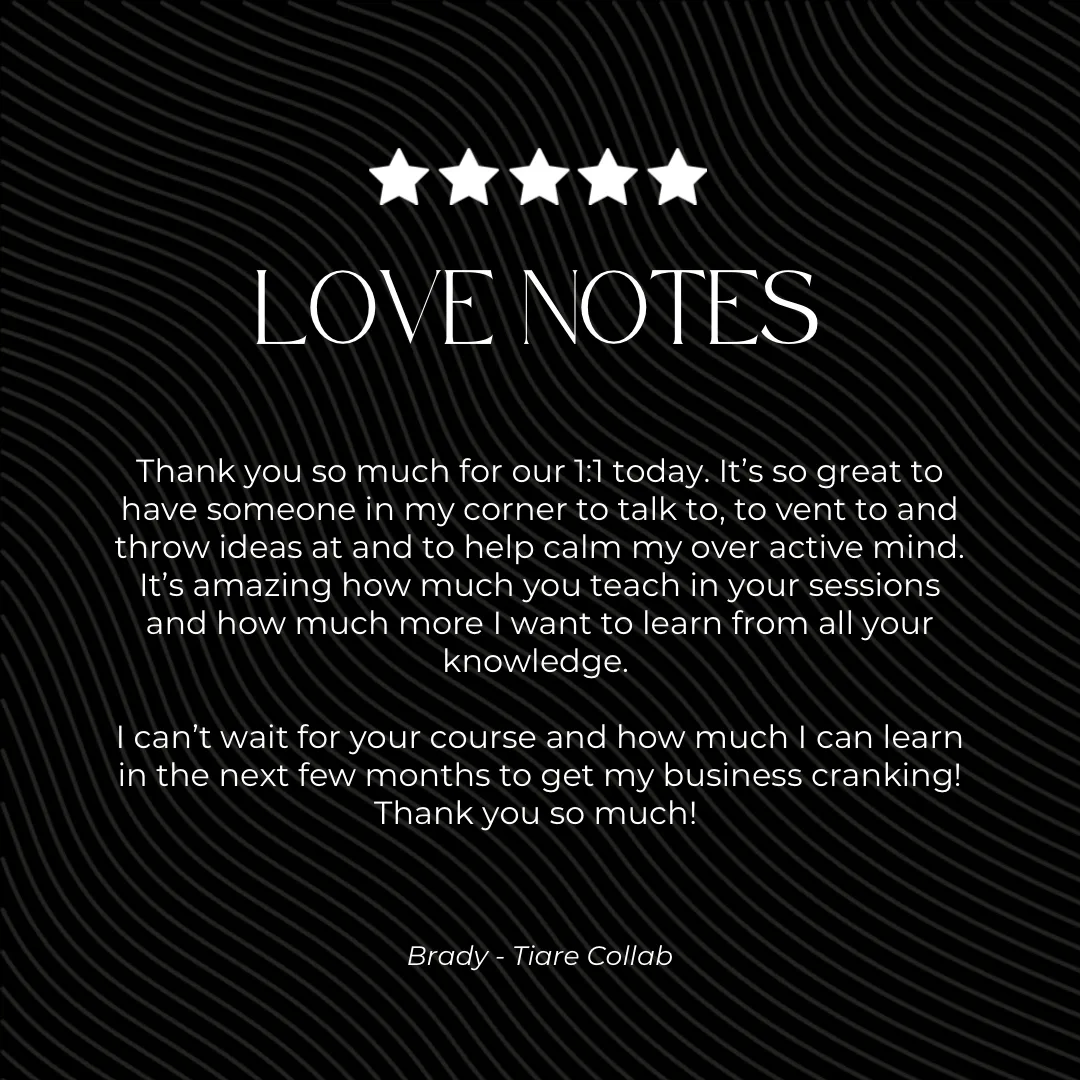 LOVE NOTES
Thank you so much for our 1:1 today. It’s so great to
have someone in my corner to talk to, to vent to and
throw ideas at and to help calm my over active mind.
It’s amazing how much you teach in your sessions
and how much more I want to learn from all your
knowledge.
I can’t wait for your course and how much I can learn
in the next few months to get my business cranking!
Thank you so much!
Brady - Tiare Collab